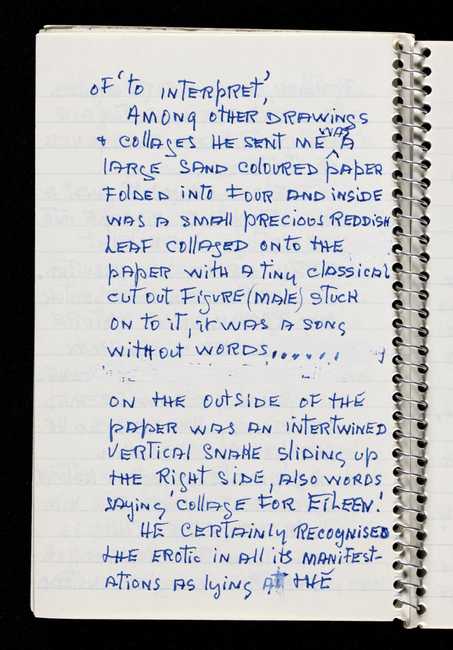 OF 'TO INTERPRET',
AMONG OTHER DRAWINGS
& COLLAGES HE SENT ME WAS A
LARGE SAND COLOURED PAPER
FOLDED INTO FOUR AND INSIDE
WAS A SMALL PRECIOUS REDDISH
LEAF COLLAGED ONTO THE
PAPER WITH A TINY CLASSICAL
CUT OUT FIGURE (MALE) STUCK
ON TO IT, IT WAS A SONG
WITHOUT WORDS.......
ON THE OUTSIDE OF THE
PAPER WAS AN INTERTWINED
VERTICAL SNAKE SLIDING UP
THE RIGHT SIDE, ALSO WORDS
SAYING 'COLLAGE FOR EILEEN'.
HE CERTAINLY RECOGNISED
THE EROTIC IN ALL ITS MANIFEST-
ATIONS AS LYING AT THE